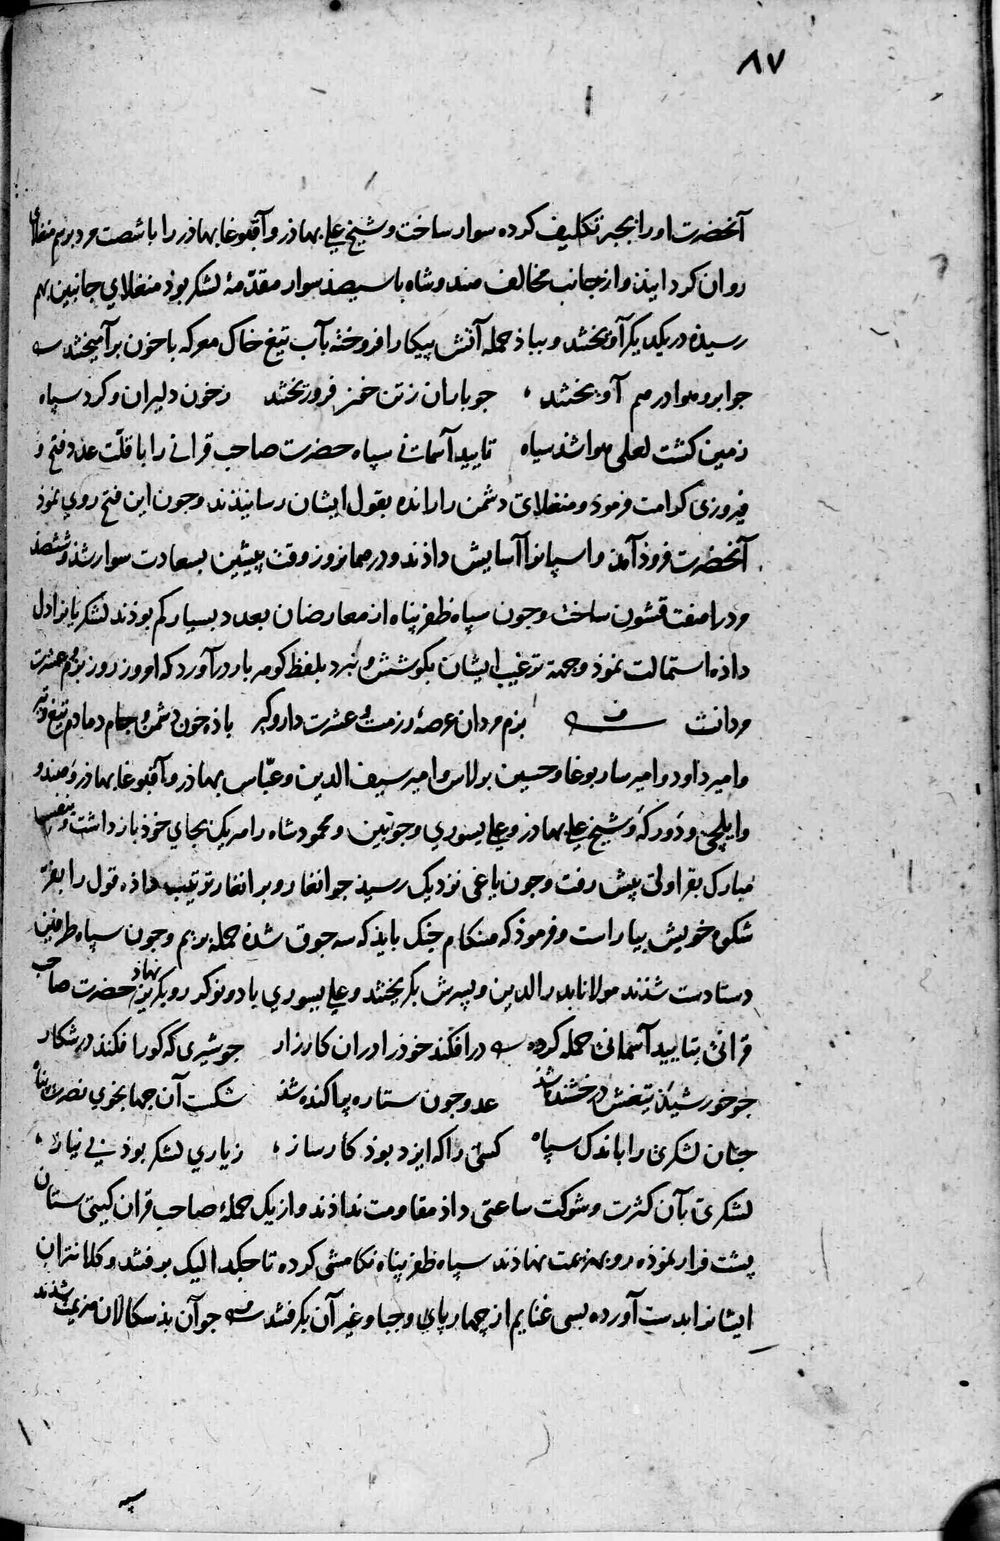 ۸۷
آنحضرت اورا بجبر تکلیف کرده سوار ساخت و شیخ علی بهادر و آقبوغا بهادر را با شصت مرد برسم منغلای
روان کردانیذ و از جانب مخالف هندوشاه با سیصد سوار مقدّمهٔ لشکر بوذ منغلای جانبین بهم
رسیده در یکدیکر آویختند و بباذ حمله آتش پیکار افروخته بآب تیغ خاک معرکه با خون برآمیختند
جو ابر و هوا در هم آویختند جو باران ز تن خون فرو ریختند ز خون دلیران و کرد سپاه
زمین کشت لعلی هوا شد سیاه تایید آسمانی سپاه حضرت صاحب قرانی را با قلّت عدد فتح و
فیروزی کرامت فرمود و منغلای دشمن را رانده بقول ایشان رسانیذند و جون این فتح روی نموذ
آنحضرت فروذ آمذ و اسپانرا آسایش داذند و در همانروز وقت پیشین بسعادت سوار شذ و ششصد
مرد را هفت قشون ساخت و جون سپاه ظفر پناه از معارضان بعدد بسیار کم بوذند لشکر یانرا دل
داذه استمالت نموذ و جهة ترغیب ایشان بکوشش و نبرد بلفظ کوهر بار در آورد که امروز روز بزم و عشرت
مردانست بزم مردان عرصهٔ رزمست و عشرت دار و کیر باذه خون دشمن و جام دمادم تیغ و تیر
و امیر داود و امیر ساربوغا و حسین برلاس و امیر سیف الدین و عبّاس بهاذر و آقبوغا بهاذر و هندو
و ایلچی و دَورکَه و شیخ علی بهاذر و علی یسوری و جوتین و محمود شاه را هر یک بجای خوذ بازداشت و بنفس
مبارک بقراولی پیش رفت و جون یاغی نزدیک رسیذ جوانغار و برانغار ترتیب داذه قول را بفرّ
شکوه خویش بیاراست و فرموذ که هنکام جنک بایذ که سه جوق شذه حمله بریم و جون سپاه طرفین
دستادست شذند مولانا بدر الدین و پسرش بکریختند و علی یسوری با دو نوکر رو بکریز نهاذ حضرت صاحب
قرانی بتایید آسمانی حمله کرده در افکند خوذ را در ان کارزار جو شیری که کور افکند در شکار
جو خورشیذ تیغش درخشنده شذ عدو جون ستاره پراکنده شذ شکست آن جهانجوی نصرت پناه
جنان لشکری را باندک سپاه کسی را که ایزد بوذ کارساز ز یاری لشکر بوذ بی نیاز
لشکری بآن کثرت و شوکت ساعتی داذ مقاومت نداذند و از یک حملهٔ صاحب قران کیتی ستان
پشت فرار نموذه رو بهزیمت نهاذند سپاه ظفر پناه تکامشی کرده تا جکدالیک برفتند و کلانتران
ایشانرا بدست آورده بسی غنایم از چهارپای و جبا و غیر آن بکرفتند جو آن بذ سکالان هزیمت شذند